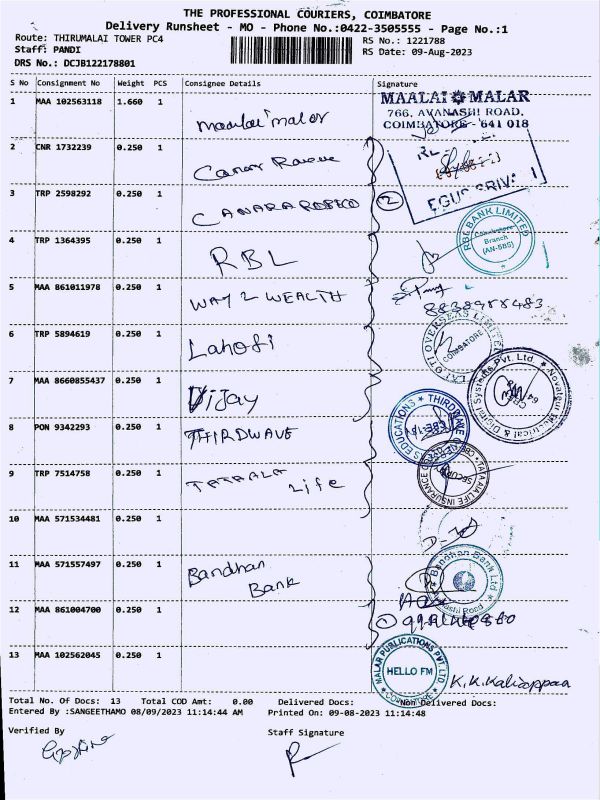 THE PROFESSIONAL COURIERS, COIMBATORE
Delivery Runsheet - MO - Phone No.:0422-3505555 - Page No.:1
Route: THIRUMALAI TOWER PC4
RS No.: 1221788
Staff: PANDI
RS Date: 09-Aug-2023
DRS No.: DCJB122178801
S No Consignment No Weight PCS Consignee Details Signature
1 MAA 102563118 1.660 1 maalai malar
MAALAI MALAR
766, AVANASHI ROAD,
COIMBATORE - 641 018
2 CNR 1732239 0.250 1
3 TRP 2598292 0.250 1 CANARA ROBECO
2
4 TRP 1364395 0.250 1 RBL
RBL BANK LIMITED
Coimbatore
Branch
(AN-SBS)
5 MAA 861011978 0.250 1 WAY 2 WEALTH
8838988483
6 TRP 5894619 0.250 1
OVERSEAS LIMITED
COIMBATORE
7 MAA 8660855437 0.250 1 Vijay
Electrical & Digital Systems Pvt. Ltd
8 PON 9342293 0.250 1 THIRDWAVE
EDUCATIONS ★ THIRDWAVE
9 TRP 7514758 0.250 1 Life
TATA AIA LIFE INSURANCE
SECURITY
10 MAA 571534481 0.250 1
11 MAA 571557497 0.250 1 Bandhan
Bank
Bandhan Bank Ltd
Road
12 MAA 861004700 0.250 1
1
13 MAA 102562045 0.250 1
MALAR PUBLICATIONS PVT. LTD
HELLO FM
COIMBATORE
Total No. Of Docs: 13 Total COD Amt: 0.00 Delivered Docs: Non Delivered Docs:
Entered By :SANGEETHAMO 08/09/2023 11:14:44 AM Printed On: 09-08-2023 11:14:48
Verified By Staff Signature